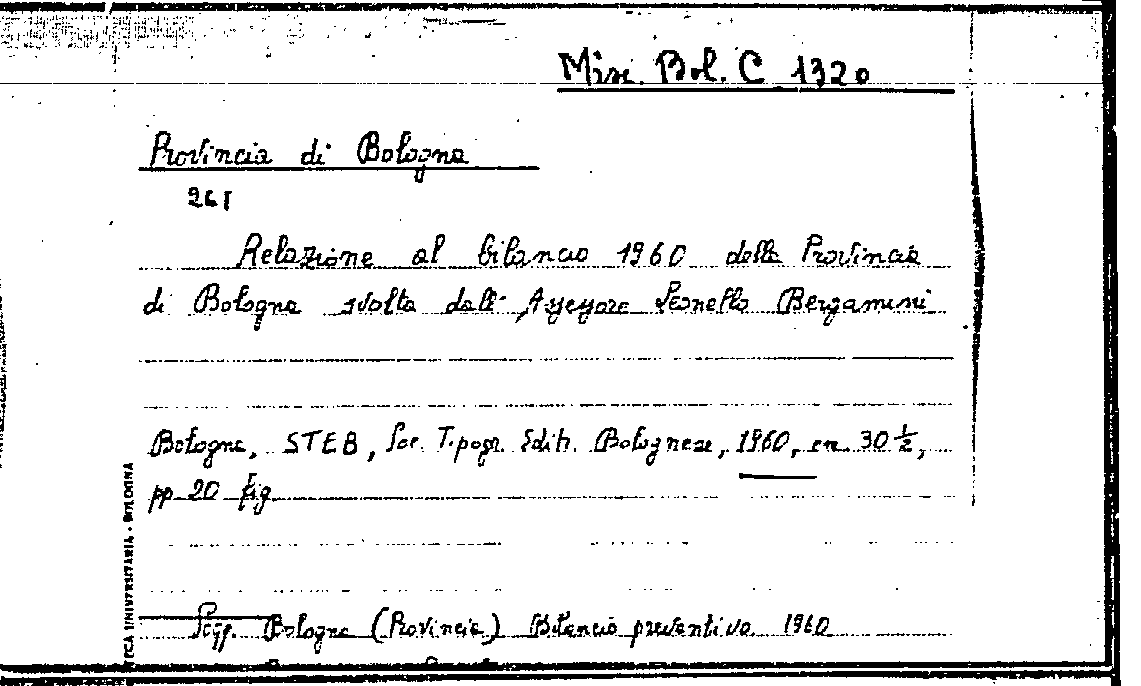 Misc. Bol. C 1320
Provincia di Bologna
261
Relazione al bilancio 1960 della Provincia
di Bologna svolta dall' Assessore Leonello Bergamini
Bologna, STEB, Soc. Tipogr. Edit. Bolognese, 1960, cm 30 ½,
pp 20 fig
Sogg. Bologna (Provincia) Bilancio preventivo 1960
TECA UNIVERSITARIA - BOLOGNA